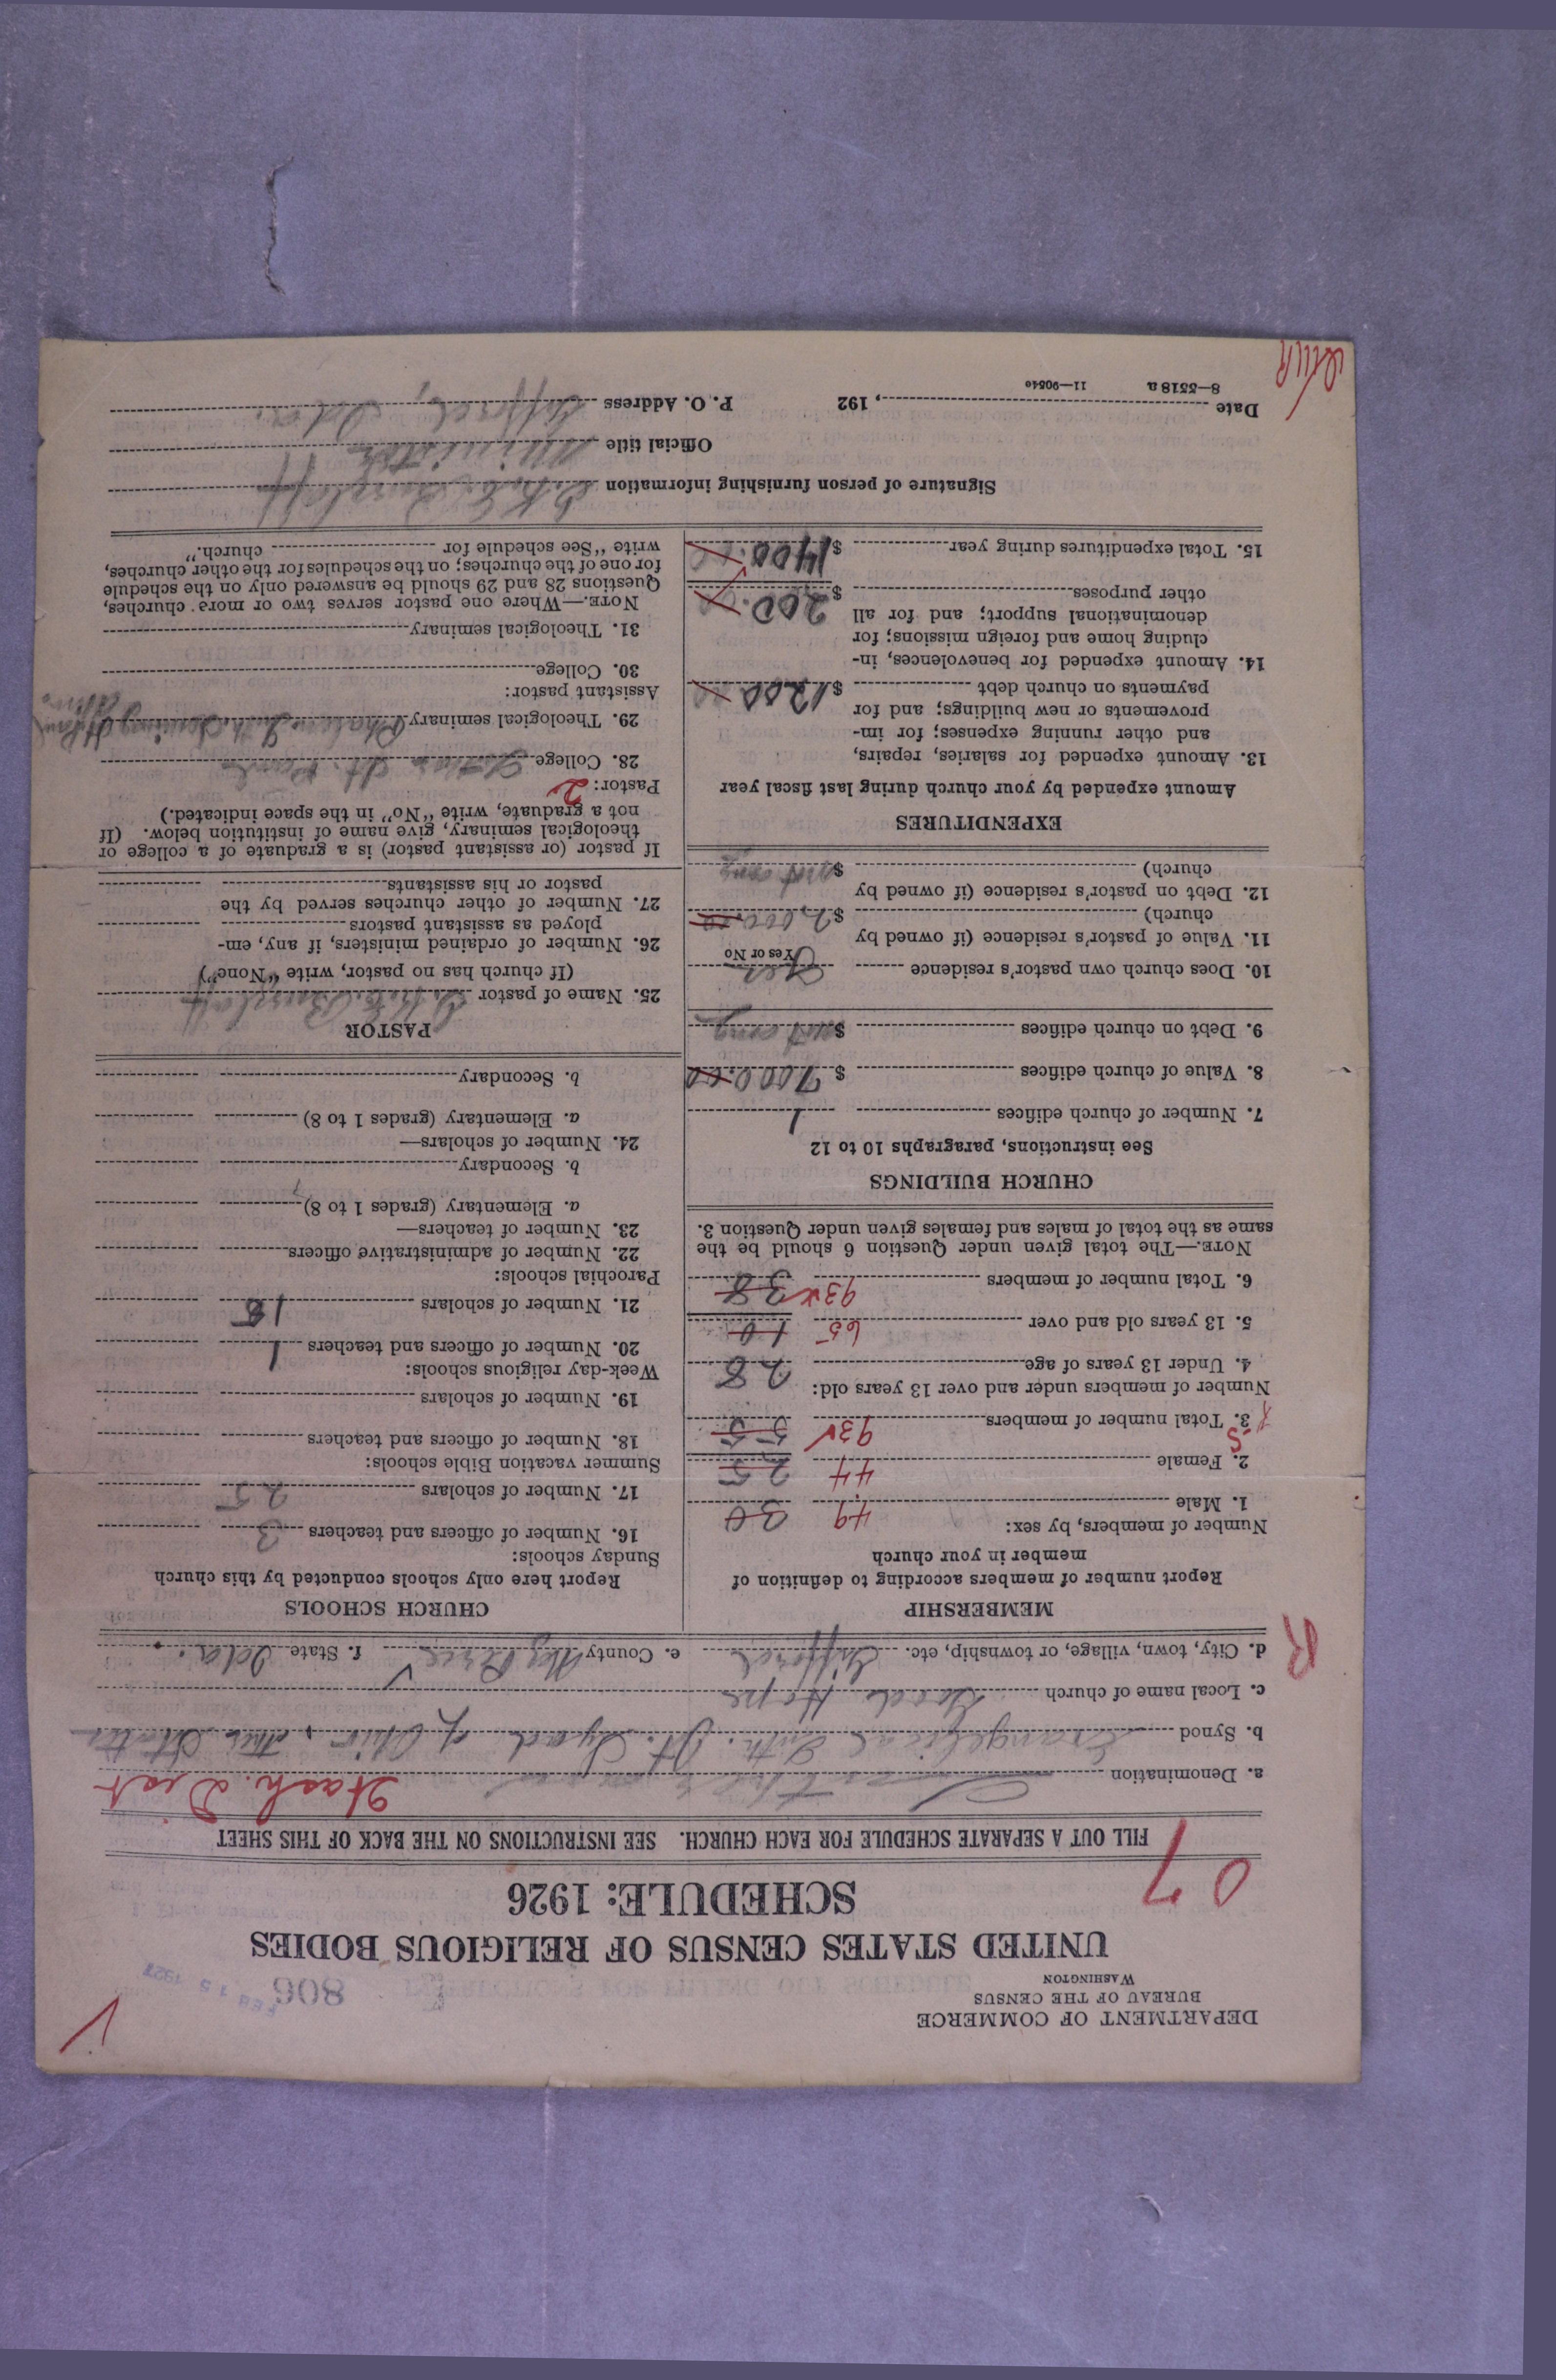 DEPARTMENT OF COMMERCE
BUREAU OF THE CENSUS
WASHINGTON
806
UNITED STATES CENSUS OF RELIGIOUS BODIES
SCHEDULE: 1926
07
FILL OUT A SEPARATE SCHEDULE FOR EACH CHURCH. SEE INSTRUCTIONS ON THE BACK OF THIS SHEET
a. Denomination Lutheran Wash. Dist
b. Synod Evangelical Luth. Jt. Synod of Ohio, other States
c. Local name of church Good Hope
d. City, town, village, or township, etc. Gifford e. County Nez Perce f. State Ida.
R
MEMBERSHIP
Report number of members according to definition of
member in your church
Number of members, by sex:
1. Male 49 30
2. Female 44 25
3. Total number of members 93 55
Number of members under and over 13 years old:
4. Under 13 years of age 28
5. 13 years old and over 65 10
6. Total number of members 93 38
NOTE.—The total given under Question 6 should be the
same as the total of males and females given under Question 3.
CHURCH BUILDINGS
See instructions, paragraphs 10 to 12
7. Number of church edifices 1
8. Value of church edifices $ 7000.00
9. Debt on church edifices $ not any
10. Does church own pastor's residence Yes
Yes or No
11. Value of pastor's residence (if owned by
church) $ 2,000.00
12. Debt on pastor's residence (if owned by
church) $ not any
EXPENDITURES
Amount expended by your church during last fiscal year
13. Amount expended for salaries, repairs,
and other running expenses; for im-
provements or new buildings; and for
payments on church debt $ 1200.00
14. Amount expended for benevolences, in-
cluding home and foreign missions; for
denominational support; and for all
other purposes $ 200.00
15. Total expenditures during year $ 1400.00
CHURCH SCHOOLS
Report here only schools conducted by this church
Sunday schools:
16. Number of officers and teachers 3
17. Number of scholars 25
Summer vacation Bible schools:
18. Number of officers and teachers
19. Number of scholars
Week-day religious schools:
20. Number of officers and teachers 1
21. Number of scholars 18
Parochial schools:
22. Number of administrative officers
23. Number of teachers—
a. Elementary (grades 1 to 8)
b. Secondary
24. Number of scholars—
a. Elementary (grades 1 to 8)
b. Secondary
PASTOR
25. Name of pastor
(If church has no pastor, write "None")
26. Number of ordained ministers, if any, em-
ployed as assistant pastors
27. Number of other churches served by the
pastor or his assistants
If pastor (or assistant pastor) is a graduate of a college or
theological seminary, give name of institution below. (If
not a graduate, write "No" in the space indicated.)
Pastor: 2
28. College St. Paul
29. Theological seminary Luth. Seminary
Assistant pastor:
30. College
31. Theological seminary
NOTE.—Where one pastor serves two or more churches,
Questions 28 and 29 should be answered only on the schedule
for one of the churches; on the schedules for the other churches,
write "See schedule for church."
Signature of person furnishing information
Official title Minister
Date , 192 P. O. Address Gifford, Ida.
8—5518 a 11—9054e